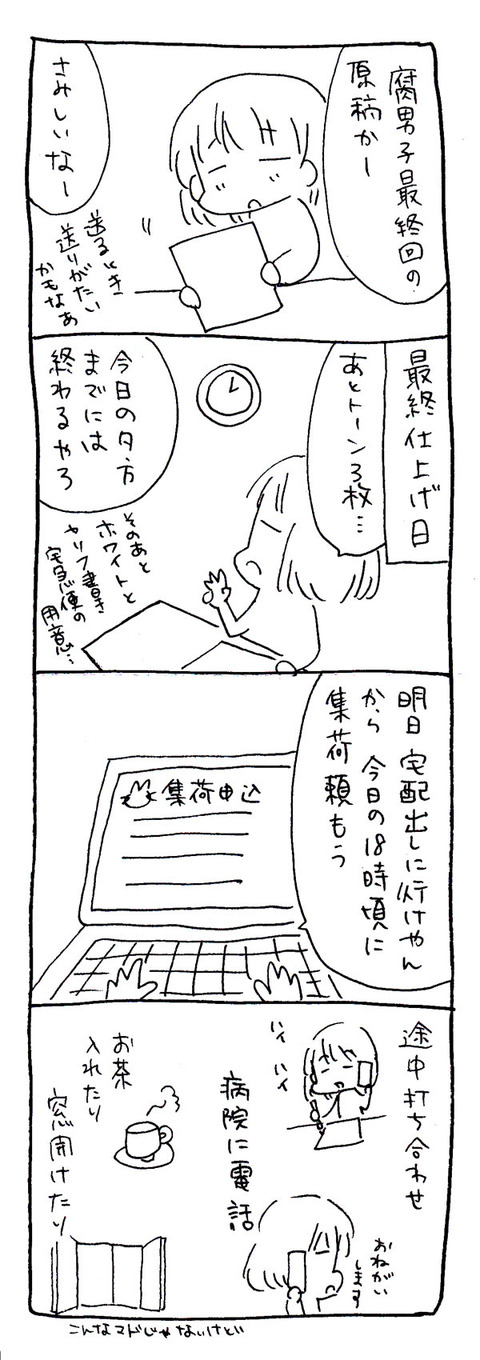 腐男子最終回の
原稿かー
さみしいなー
送るとき
送りがたい
かもなぁ
最終仕上げ日
あとトーン3枚…
今日の夕方
までには
終わるやろ
そのあと
ホワイトと
セリフ書き
宅急便の
用意…
明日 宅配出しに行けやん
から 今日の18時頃に
集荷頼もう
集荷申込
途中打ち合わせ
ハイ ハイ
病院に電話
おねがい
します
お茶
入れたり
窓開けたり
こんなマドじゃないけど